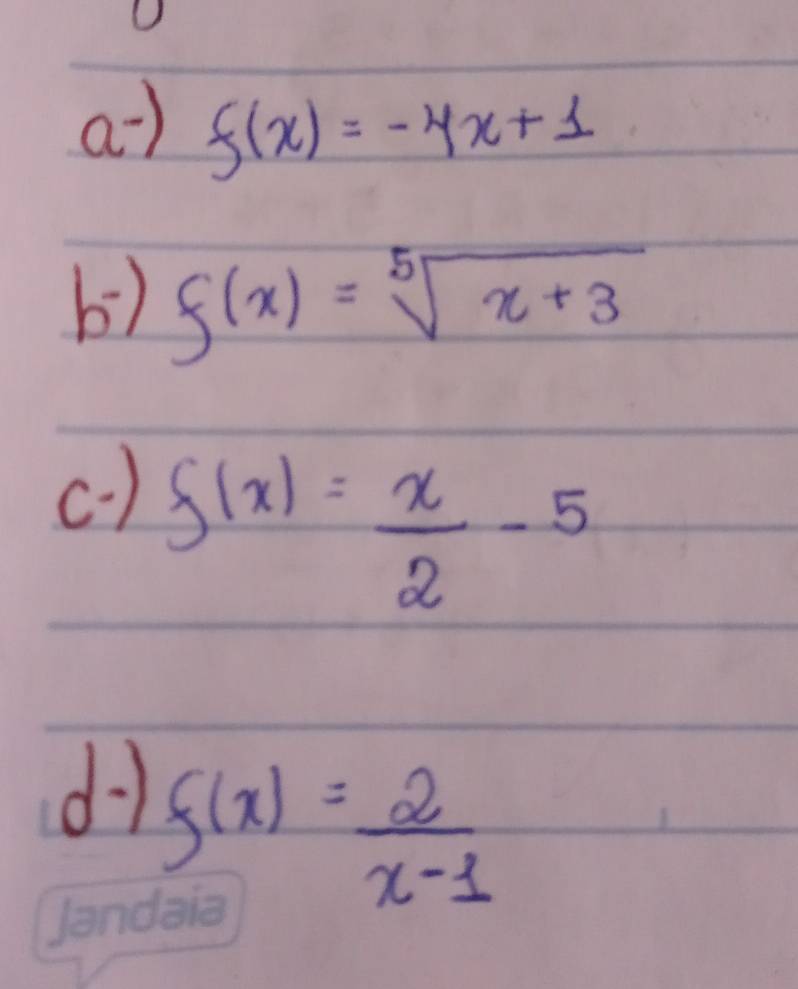 a-) f(x) = -4x + 1
b-) f(x) = ⁵√(x + 3)
c-) f(x) = x/2 - 5
d-) f(x) = 2/(x - 1)
Jandaia